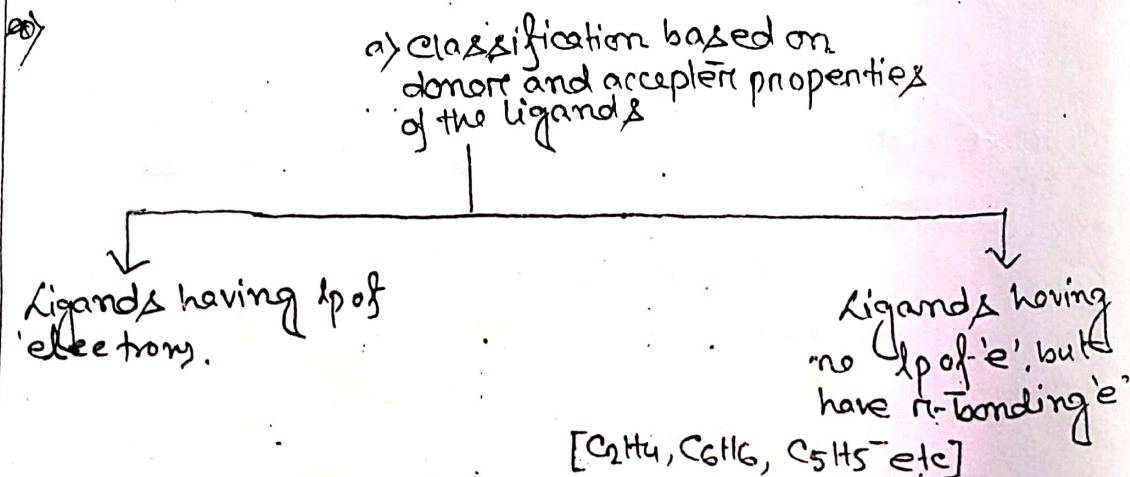 a) classification based on
donor and accepter properties
of the ligands
Ligands having lp of
electrons.
Ligands having
no lp of 'e', but
have π-bonding 'e'
[C2H4, C6H6, C5H5⁻ etc]